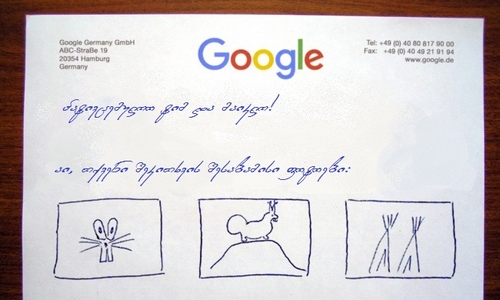 Google Germany GmbH
ABC-Straße 19
20354 Hamburg
Germany
Google
Tel: +49 (0) 40 80 817 90 00
Fax: +49 (0) 40 49 21 91 94
www.google.de
პატივცემულო ტიმ და მაიკლ!
აი, თქვენი შეკითხვის შესაბამისი ფოტოები: